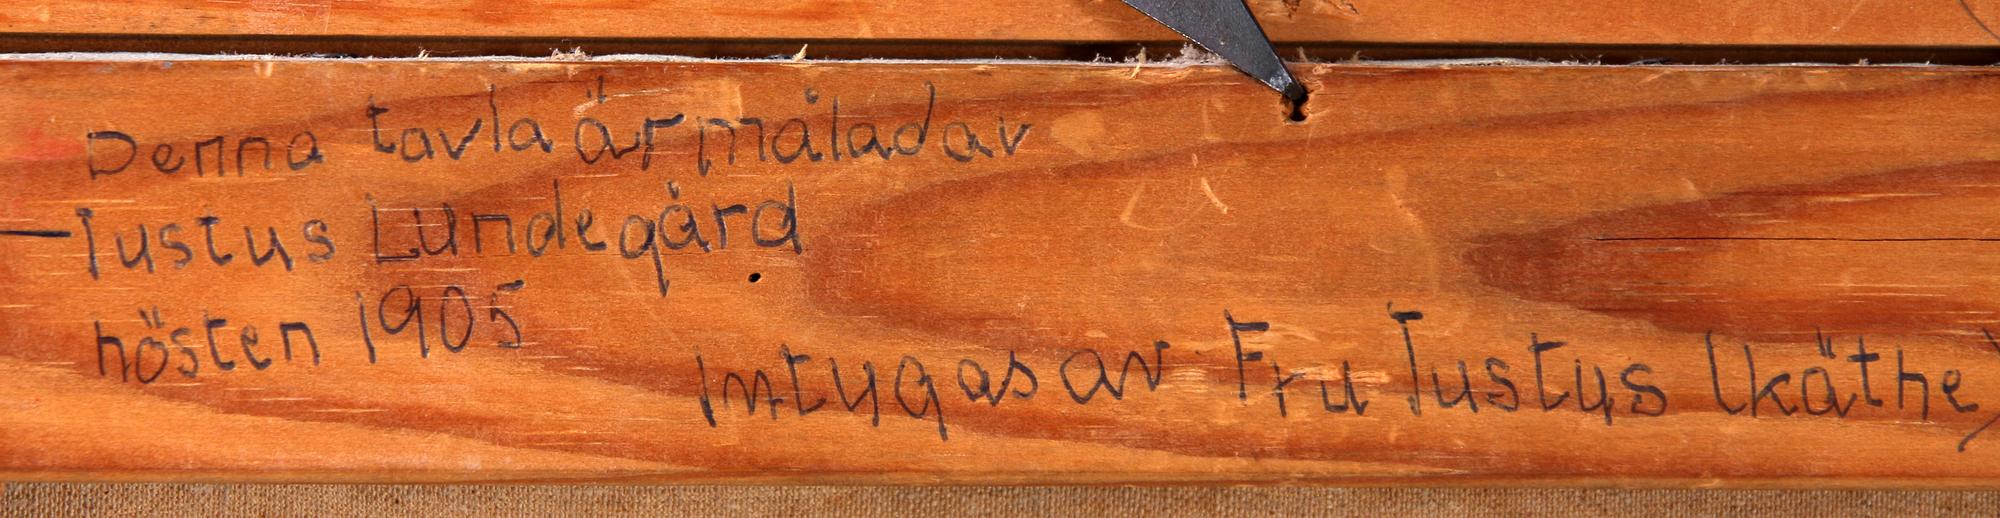 Denna tavla är målad av
Justus Lundegård
hösten 1905
Intygas av Fru Justus (Käthe)